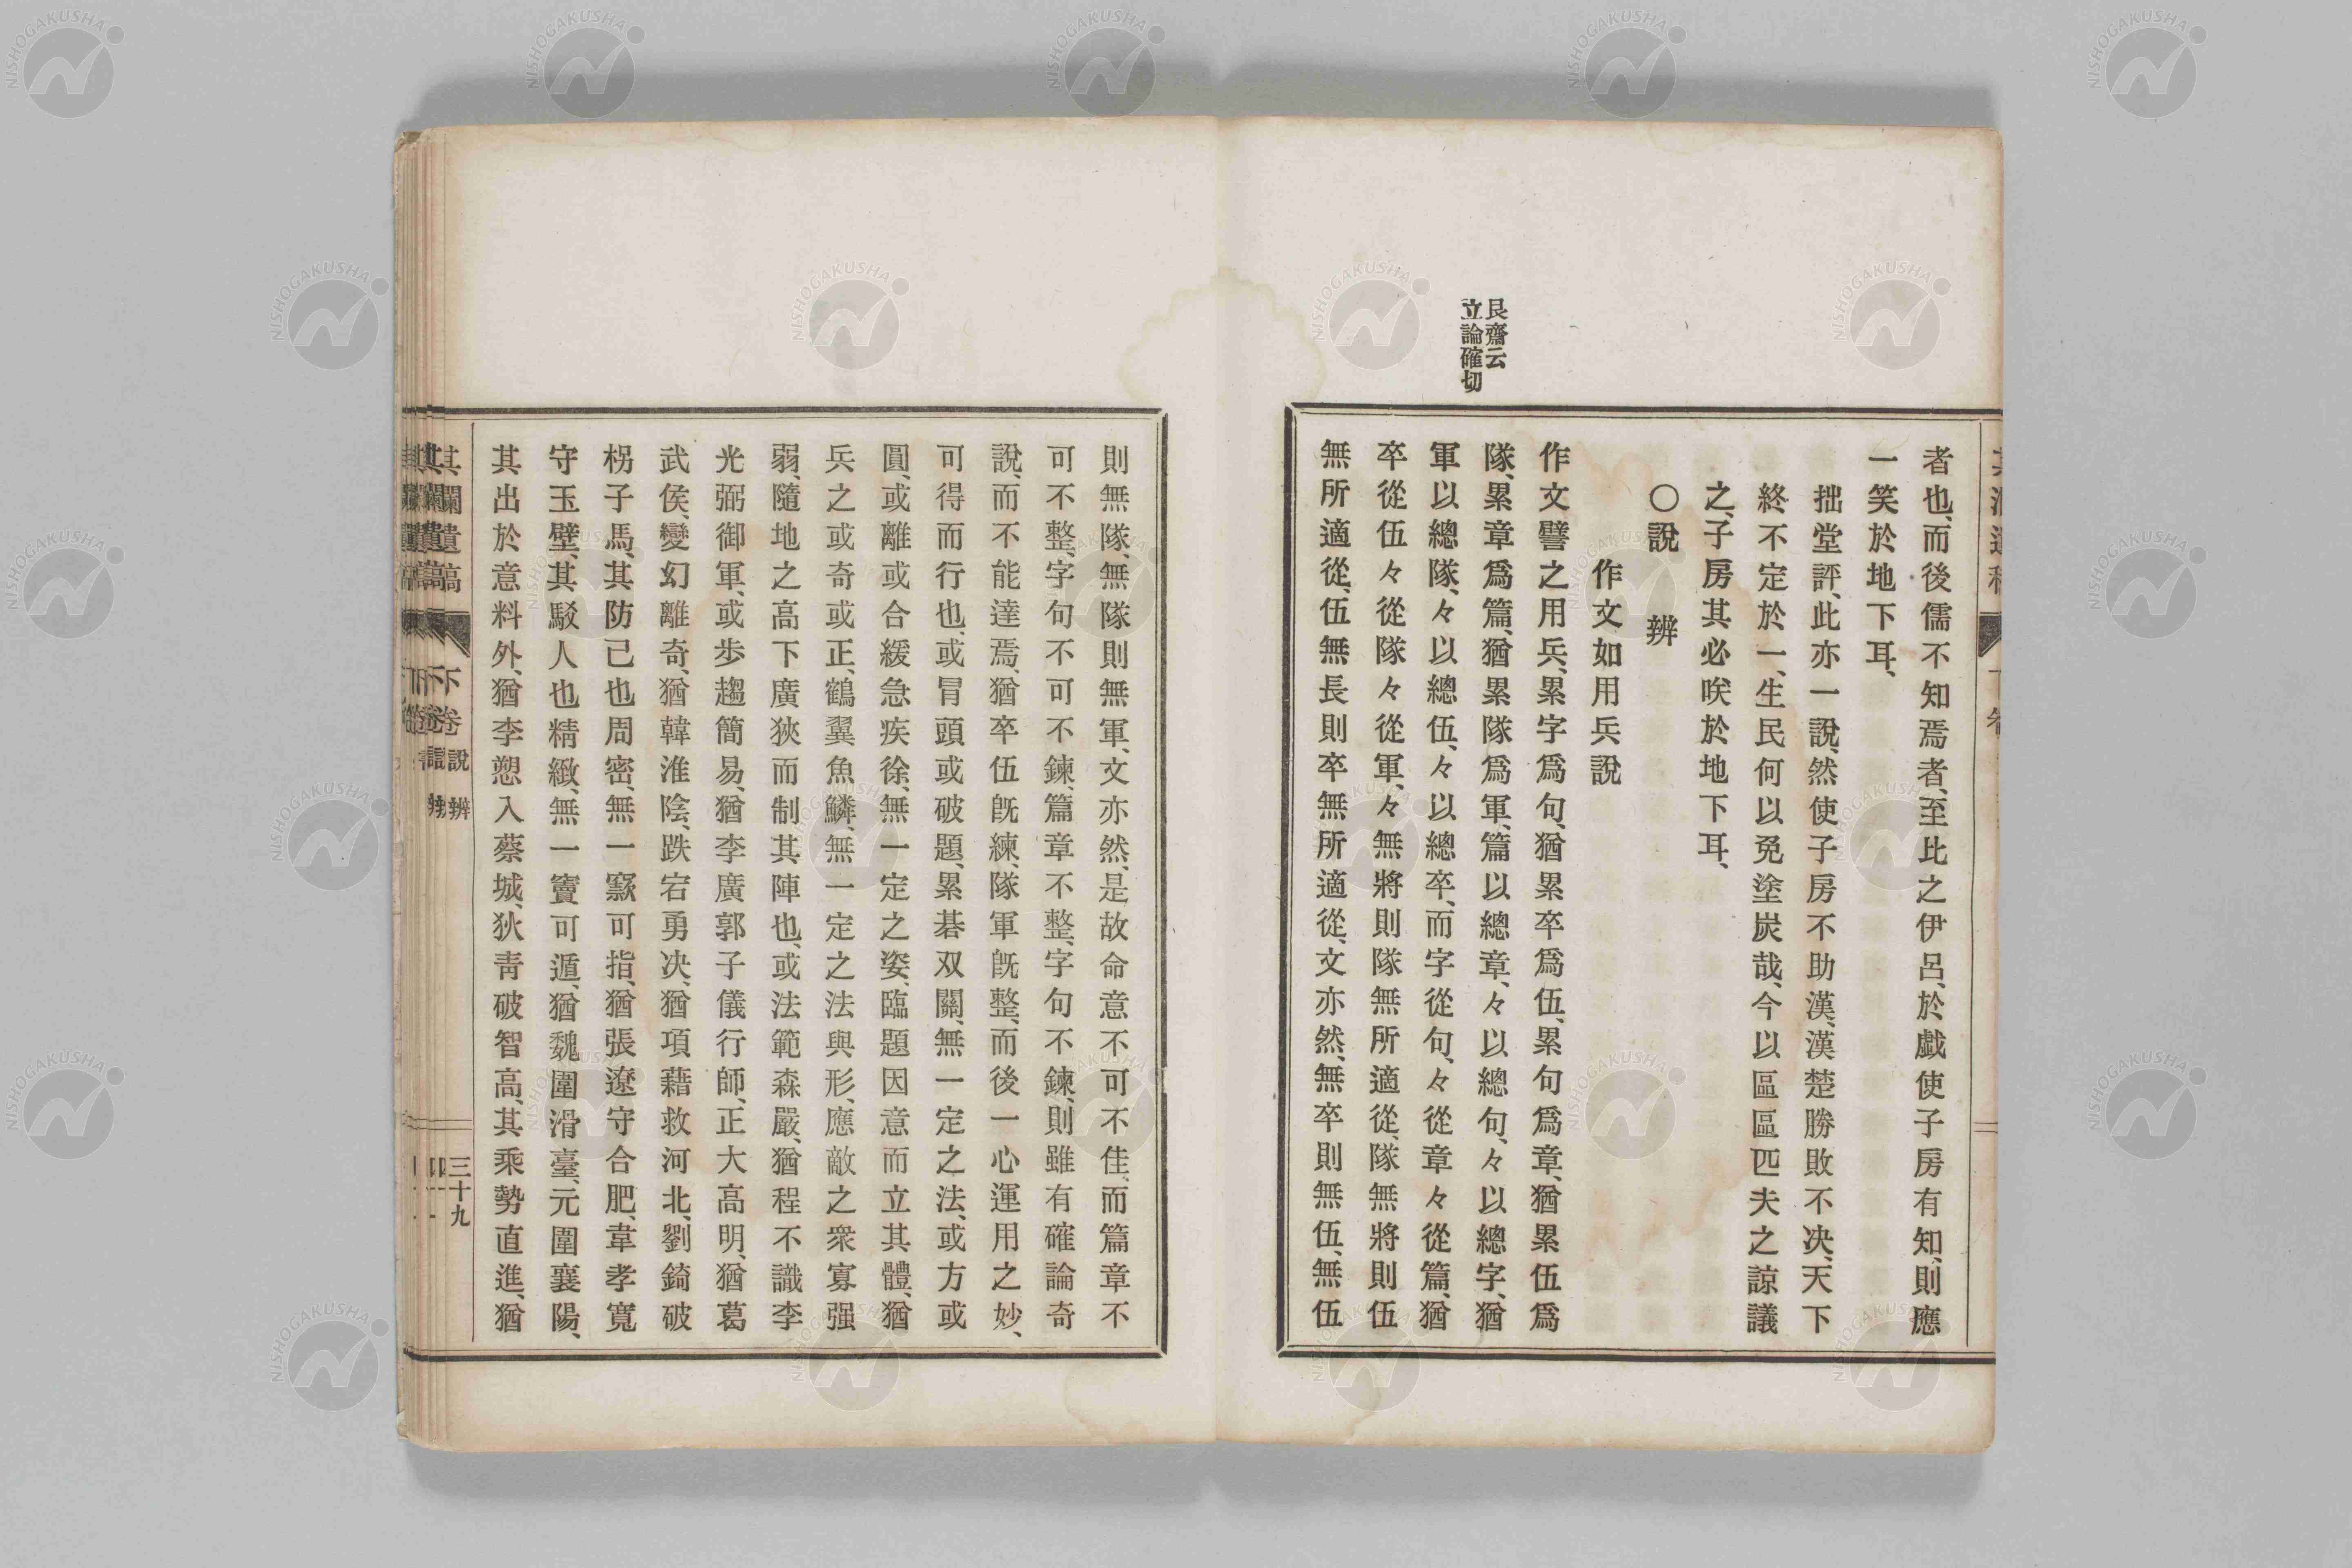 者也、而後儒不知焉者、至比之伊呂、於戯使子房有知、則應
一笑於地下耳、
拙堂評、此亦一說、然使子房不助漢、漢楚勝敗不決、天下
終不定於一、生民何以免塗炭哉、今以區區匹夫之諒議
之、子房其必咲於地下耳、
〇說 辨
作文如用兵說
艮齋云
立論確切
作文譬之用兵、累字爲句、猶累卒爲伍、累句爲章、猶累伍爲
隊、累章爲篇、猶累隊爲軍、篇以總章、々以總句、々以總字、猶
軍以總隊、々以總伍、々以總卒、而字從句、々從章々從篇、猶
卒從伍々從隊々從軍、々無將則隊無所適從、隊無將則伍
無所適從、伍無長則卒無所適從、文亦然、無卒則無伍、無伍
則無隊、無隊則無軍、文亦然、是故命意不可不佳、而篇章不
可不整、字句不可不鍊、篇章不整、字句不鍊、則雖有確論奇
說、而不能達焉、猶卒伍旣練、隊軍旣整、而後一心運用之妙、
可得而行也、或冒頭或破題、累碁双關、無一定之法、或方或
圓、或離或合緩急疾徐、無一定之姿、臨題因意而立其體、猶
兵之或奇或正、鶴翼魚鱗、無一定之法與形、應敵之衆寡强
弱、隨地之高下廣狹而制其陣也、或法範森嚴、猶程不識李
光弼御軍、或歩趨簡易、猶李廣郭子儀行師、正大高明、猶葛
武侯、變幻離奇、猶韓淮陰、跌宕勇决、猶項藉救河北、劉錡破
柺子馬、其防己也周密、無一竅可指、猶張遼守合肥、韋孝寬
守玉壁、其駁人也精緻、無一竇可遁、猶魏圍滑臺、元圍襄陽、
其出於意料外、猶李愬入蔡城、狄靑破智高、其乘勢直進、猶
其瀾遺稿 下卷 說 辨 三十九